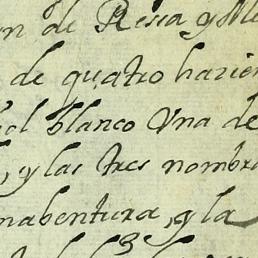 n de Resea y Me
de quatro hazien
ol blanco Una de
, y las tres nombra
nabentura, y la